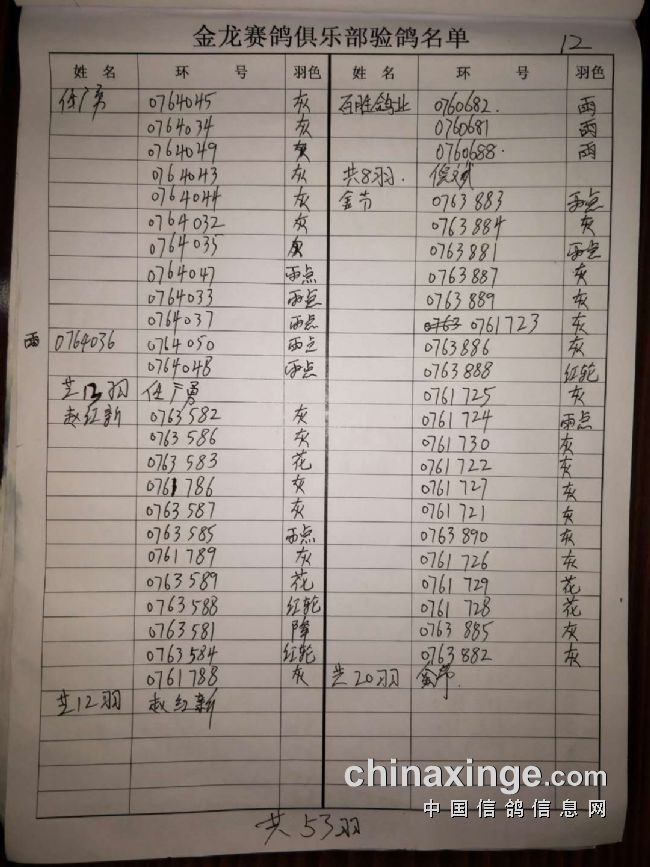 金龙赛鸽俱乐部验鸽名单 12
姓 名 环 号 羽色
任广勇 0764045 灰
0764034 灰
0764049 灰
0764043 灰
0764044 灰
0764032 灰
0764035 灰
0764047 雨点
0764033 雨点
0764037 雨点
雨 0764036 0764050 雨点
0764048 雨点
共13羽 任广勇
赵红新 0763582 灰
0763586 灰
0763583 花
0761786 灰
0763587 灰
0763585 雨点
0761789 灰
0763589 花
0763588 红轮
0763581 降
0763584 红轮
0761788 灰
共12羽 赵红新
姓 名 环 号 羽色
百胜鸽业 0760682. 雨
0760681 雨
0760688. 雨
共8羽.
0763883 雨点
0763884 灰
0763881 雨点
0763887 灰
0763889 灰
0763 0761723 灰
0763886 灰
0763888 红轮
0761725 灰
0761724 雨点
0761730 灰
0761722 灰
0761727 灰
0761721 灰
0763890 灰
0761726 灰
0761729 花
0761728 花
0763885 灰
0763882 灰
共20羽
共53羽
chinaxinge.com
中国信鸽信息网